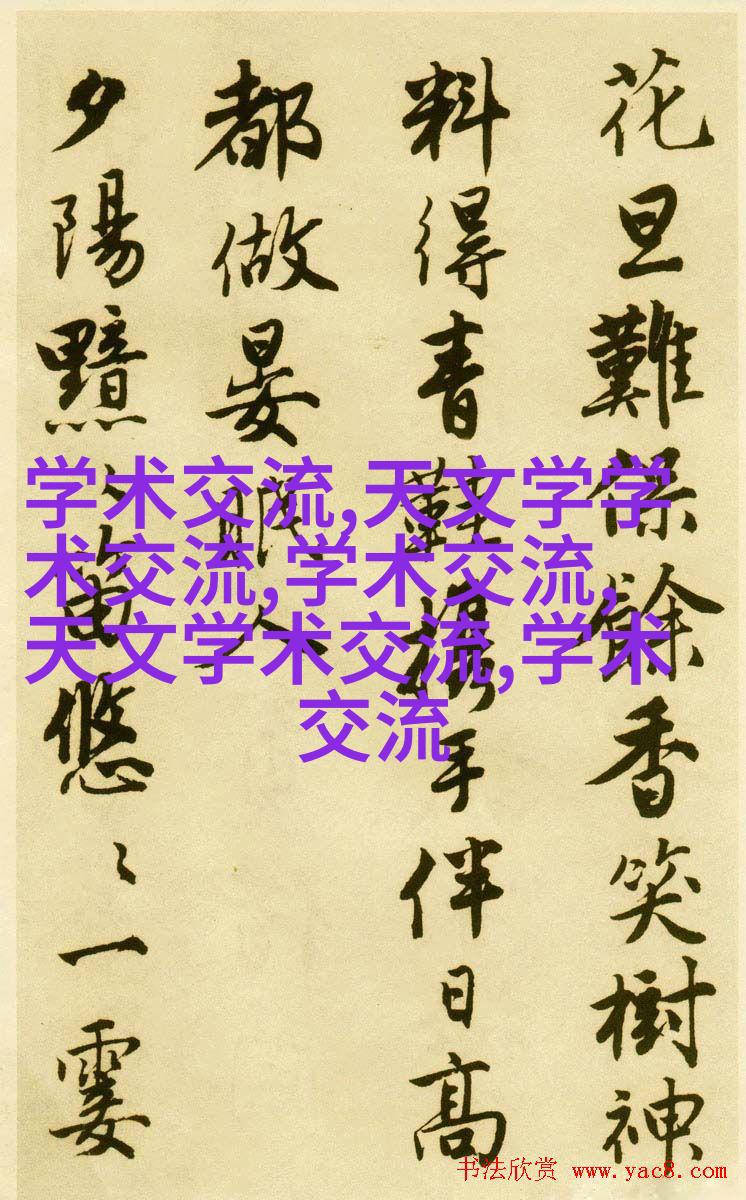 花旦難保餘香笑樹神
料得青鞋攜手伴日高
都做晏眠人
夕陽黯〻笛悠〻一霎
学术交流,天文学学
术交流,学术交流,
天文学术交流,学术
交流
书法欣赏 www.yac8.com